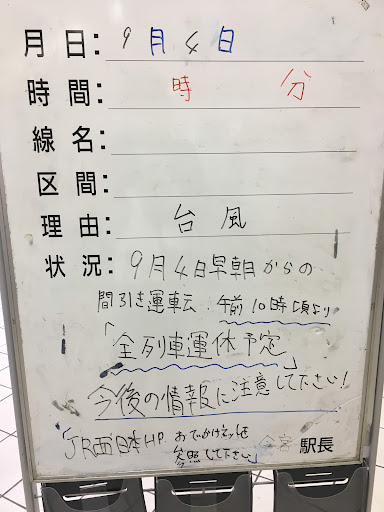 月日: 9月4日
時間: 時 分
線名:
区間:
理由: 台風
状況: 9月4日早朝からの
間引き運転 午前10時頃より
「全列車運休予定」
今後の情報に注意して下さい!
「JR西日本HP おでかけネットを
参照して下さい」 駅長